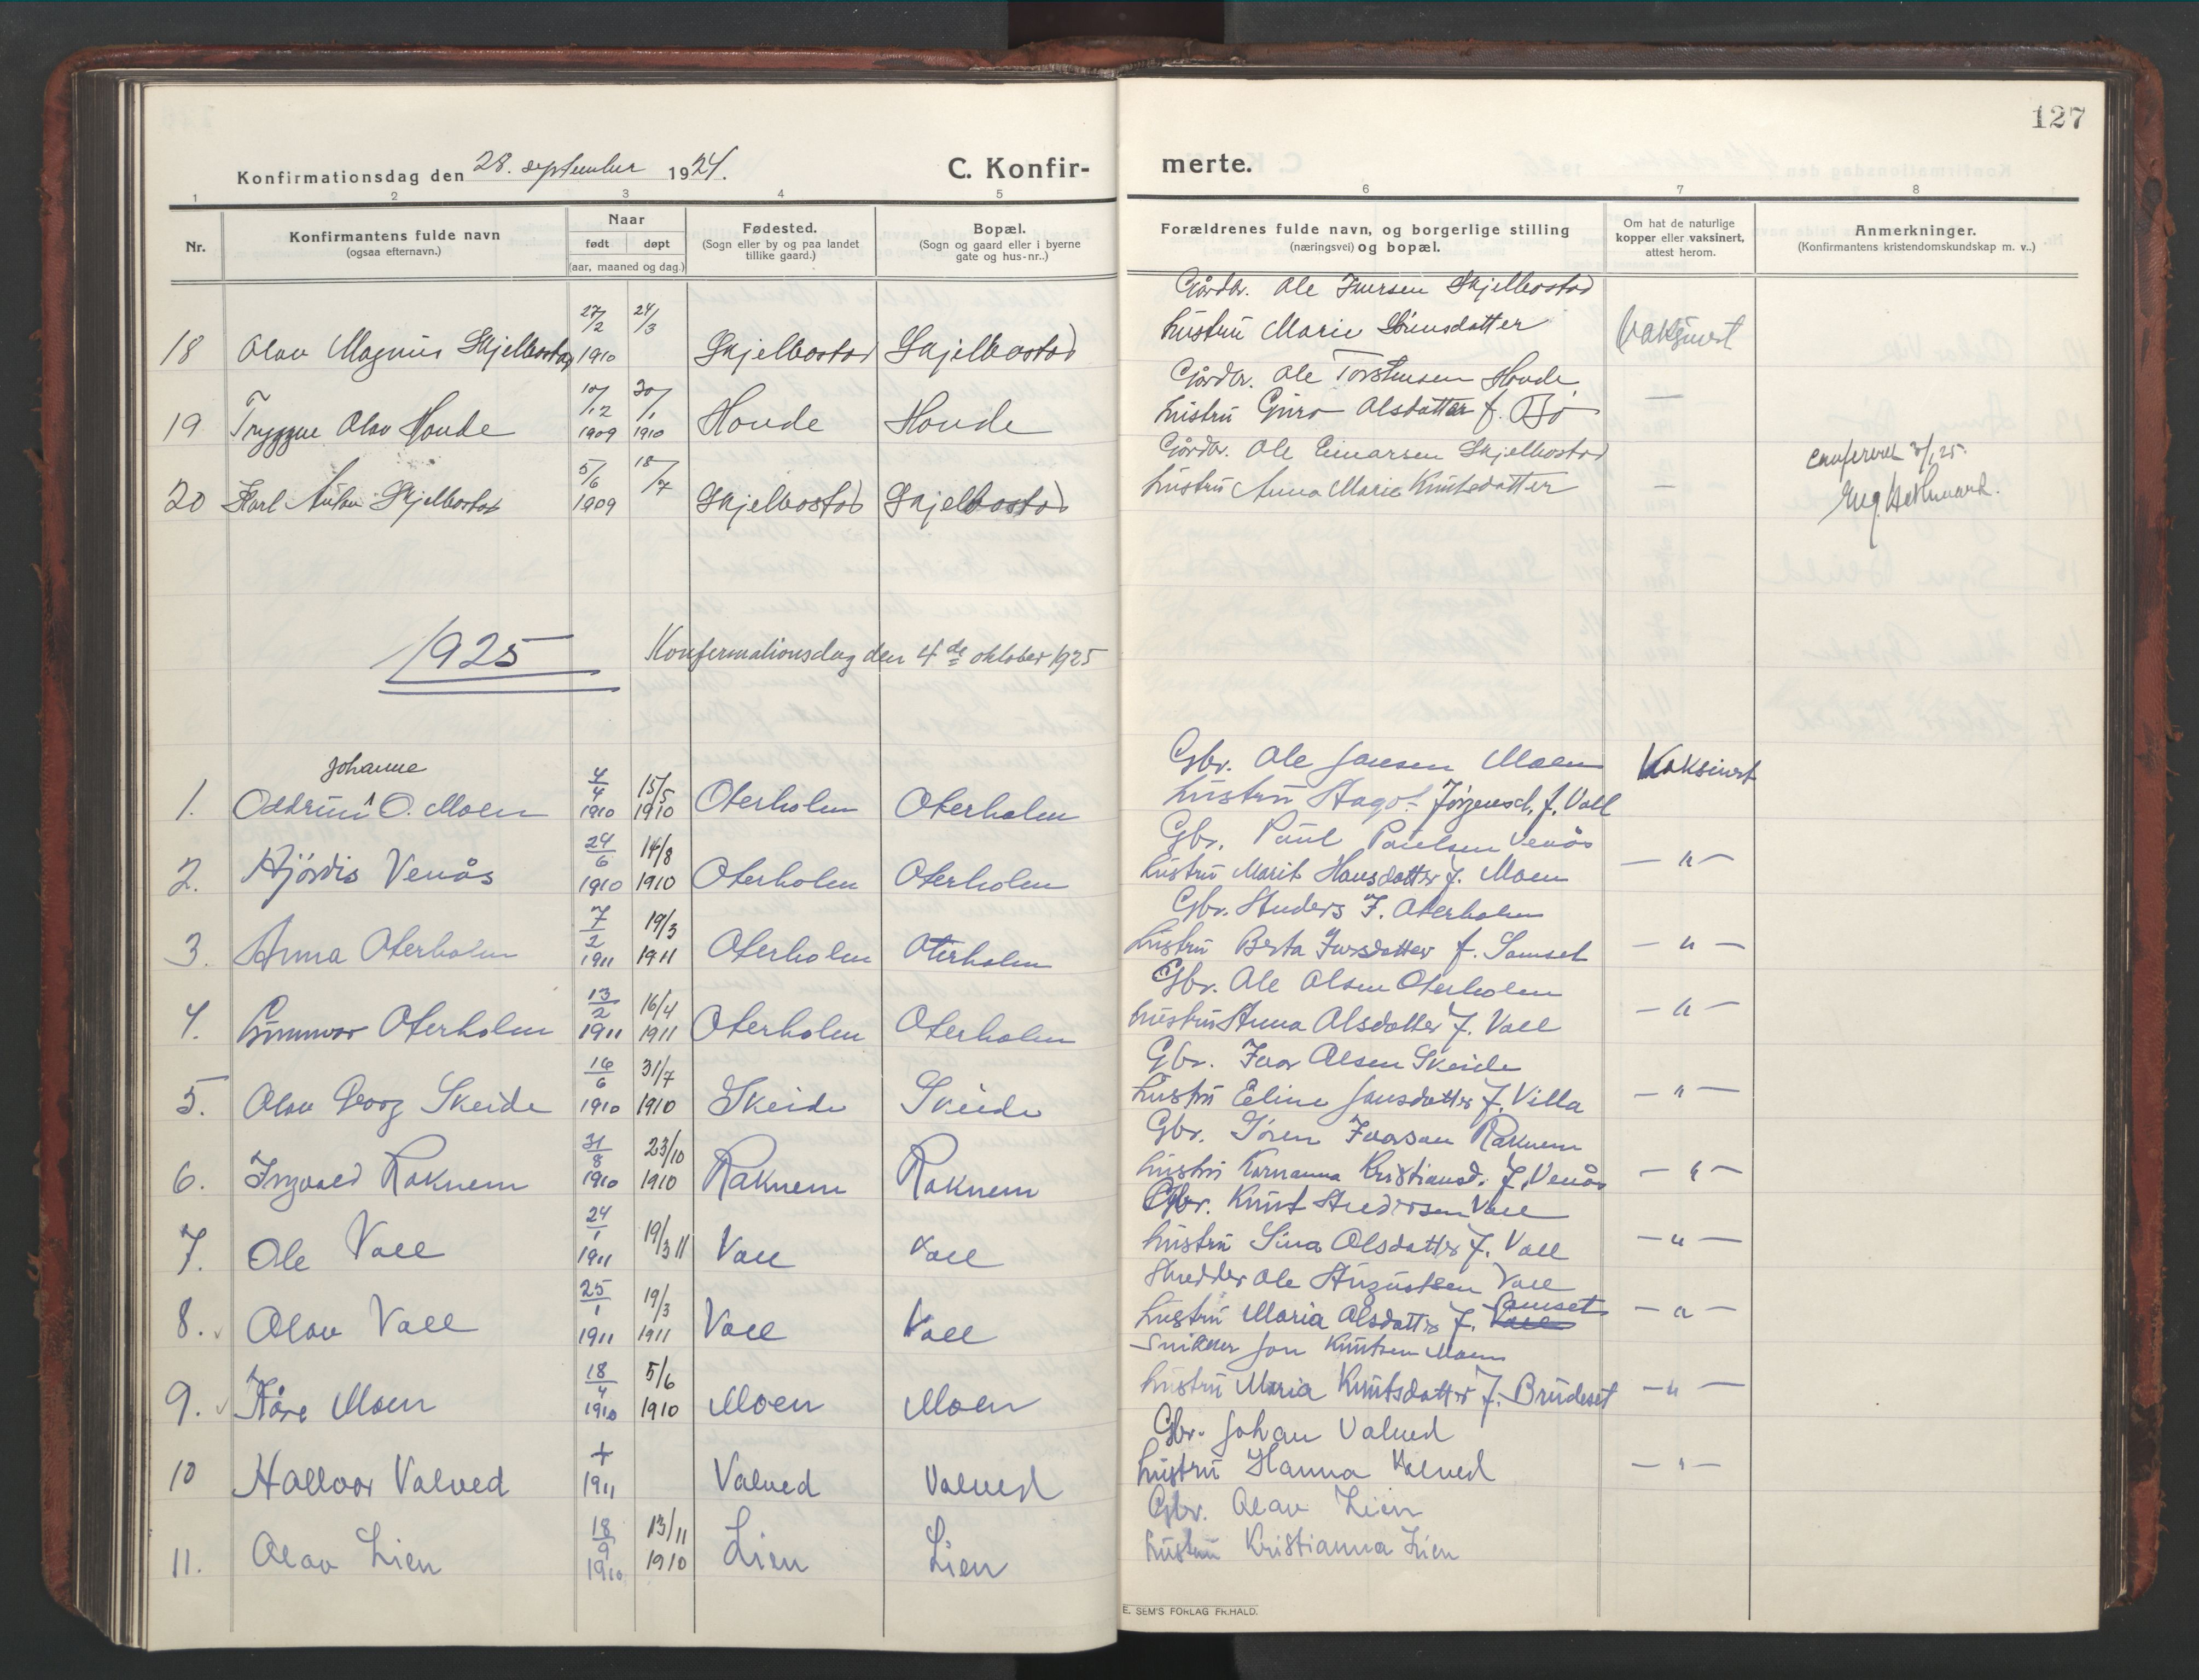 127
Konfirmationsdag den 28. september 1924.
C. Konfir-
merte.
1 2 3 4 5 6 7 8
Nr.
Konfirmantens fulde navn
(ogsaa efternavn.)
Naar
født døpt
(aar, maaned og dag.)
Fødested.
(Sogn eller by og paa landet
tillike gaard.)
Bopæl.
(Sogn og gaard eller i byerne
gate og hus-nr..)
Forældrenes fulde navn, og borgerlige stilling
(næringsvei) og bopæl.
Om hat de naturlige
kopper eller vaksinert,
attest herom.
Anmerkninger.
(Konfirmantens kristendomskundskap m. v..)
18 Olav Magnus Skjelbostad 27/2 1910 24/3 Skjelbostad Skjelbostad
Gårdbr. Ole Iversen Skjelbostad
hustru Marie
Vaksinert
19 Tryggve Olav Hovde 10/12 1909 30/1 1910 Hovde Hovde
Gårdbr. Ole Torstensen Hovde
hustru Guro Olsdatter f. Bø
—
20 Karl Anton Skjelbostad 5/6 1909 18/7 Skjelbostad Skjelbostad
Gårdbr. Ole Einarsen Skjelbostad
hustru Anna Marie Knutsdatter
—
1925
Konfirmationsdag den 4de oktober 1925
1. Oddrun Johanne O. Moen 4/4 1910 15/5 1910 Oterholm Oterholm
Gbr. Ole Jonsen Moen
hustru Jørgensd. f. Voll
Vaksinert
2. Hjördis Venås 24/6 1910 14/8 1910 Oterholm Oterholm
Gbr. Paul Paulsen Venås
hustru Marit Hansdatter f. Moen
— " —
3. Anna Oterholm 7/2 1911 19/3 1911 Oterholm Oterholm
Gbr. Anders J. Oterholm
hustru Berta Iversdatter f. Samset
— " —
4. Gunnvor Oterholm 13/2 1911 16/4 1911 Oterholm Oterholm
Gbr. Ole Olsen Oterholm
hustru Anna Olsdatter f. Voll
— " —
5. Olav Georg Skeide 16/6 1910 31/7 1910 Skeide Skeide
Gbr. Ivar Olsen Skeide
hustru Eline Jonsdatter f. Villa
— " —
6. Ingvald Raknem 31/8 1910 23/10 1910 Raknem Raknem
Gbr. Sören Ivarsen Raknem
hustru Karnanna Kristiansd. f. Venås
— " —
7. Ole Voll 24/1 1911 19/3 11 Voll Voll
Gbr. Knut Andersen Voll
hustru Sina Olsdatter f. Voll
— " —
8. Olav Voll 25/1 1911 19/3 1911 Voll Voll
Skredder Ole Augustsen Voll
hustru Maria Olsdatter f. Samset
— " —
9. Kåre Moen 18/4 1910 5/6 1910 Moen Moen
Snikker Jon Knutsen Moen
hustru Maria Knutsdatter f. Brudeset
— " —
10 Hallvar Valved + 1911 Valved Valved
Gbr. Johan Valved
hustru Hanna Valved
— " —
11. Olav Lien 18/9 1910 13/11 1910 Lien Lien
Gbr. Olav Lien
hustru Kristianna Lien
E. SEM'S FORLAG FR.HALD.